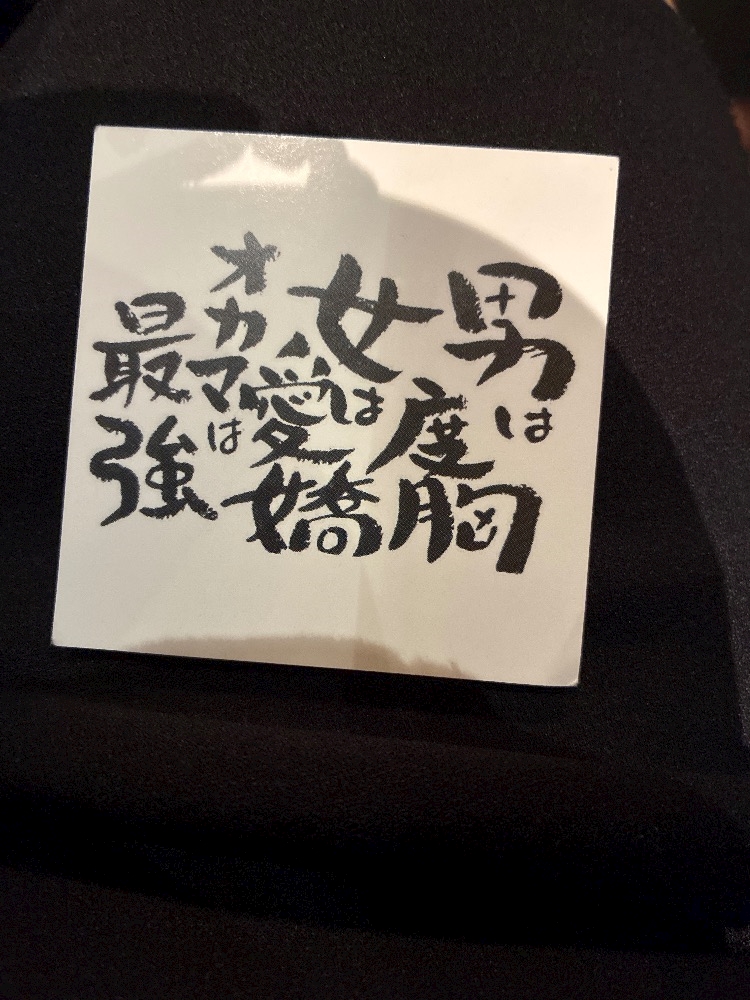 男は
度胸
女は
愛嬌
オカマは
最強